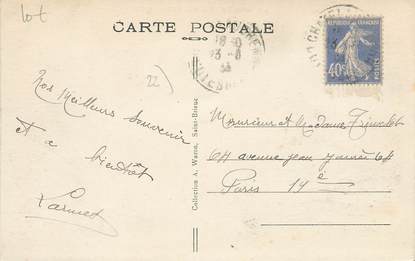 lot
CARTE POSTALE
RÉPUBLIQUE FRANÇAISE
40c
POSTES
22)
Nos Meilleurs Souvenir
et a
bientôt
Collection A. Waron, Saint-Brieuc
Monsieur et Madame
64 avenue jean jaurès 64
Paris 19e